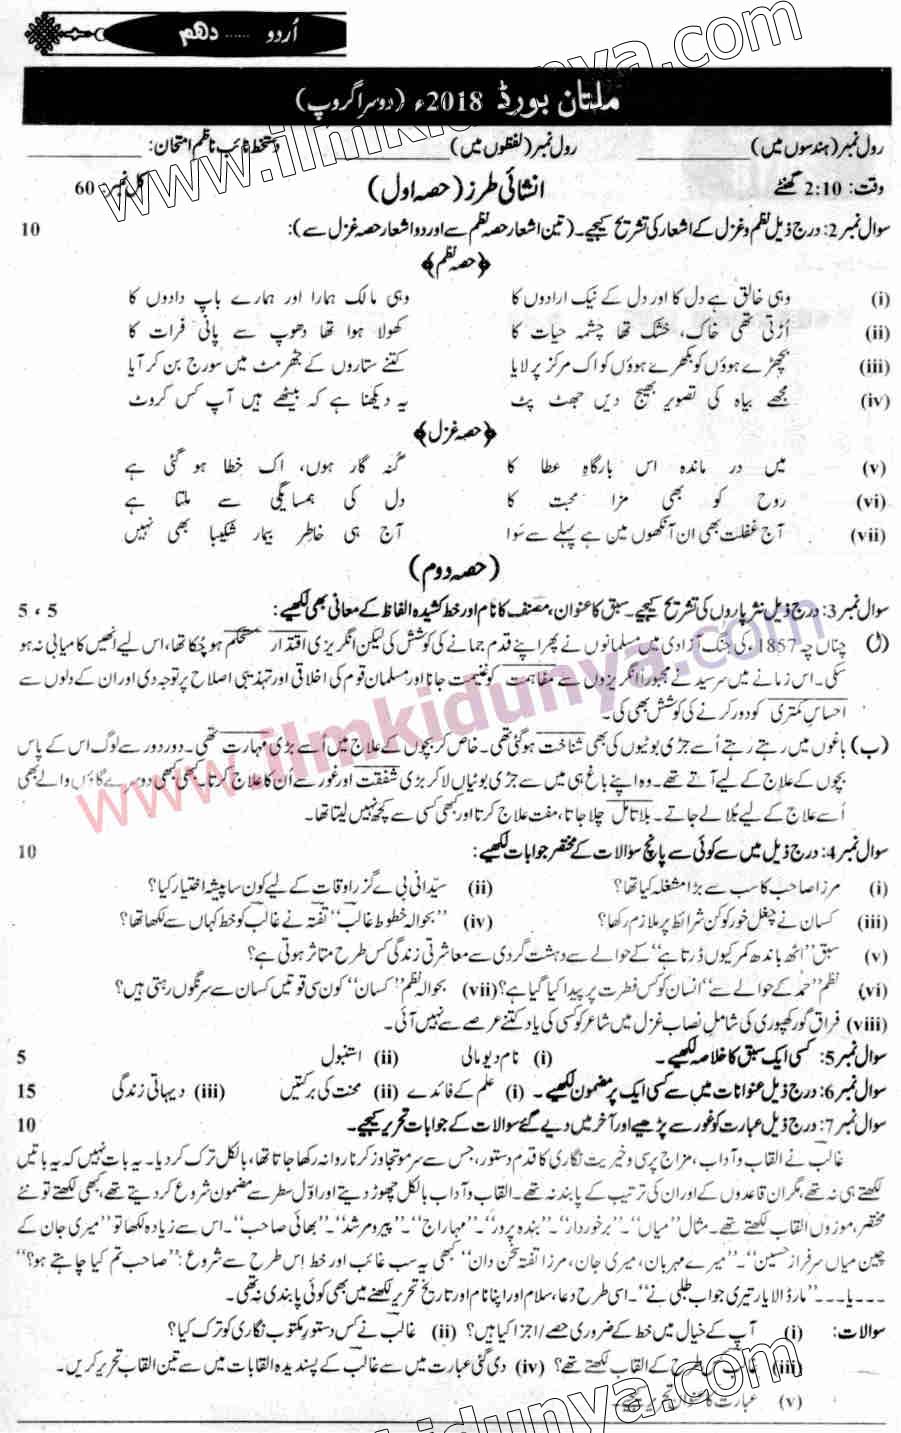 اُردو ...... دهم
ملتان بورڈ 2018ء (دوسرا گروپ)
رول نمبر (ہندسوں میں) ____________ رول نمبر (لفظوں میں) ____________ دستخط نائب ناظم امتحان: ____________
وقت: 2:10 گھنٹے انشائی طرز (حصہ اول) کل نمبر 60
سوال نمبر 2: درج ذیل نظم و غزل کے اشعار کی تشریح کیجیے۔ (تین اشعار حصہ نظم سے اور دو اشعار حصہ غزل سے): 10
﴿حصہ نظم﴾
(i) وہی خالق ہے دل کا اور دل کے نیک ارادوں کا وہی مالک ہمارا اور ہمارے باپ دادوں کا
(ii) اُڑتی تھی خاک، خشک تھا چشمہ حیات کا کھولا ہوا تھا دھوپ سے پانی فرات کا
(iii) بچھڑے ہوؤں کو بکھرے ہوؤں کو اک مرکز پر لایا کتنے ستاروں کے جھرمٹ میں سورج بن کر آیا
(iv) مجھے بیاہ کی تصویر بھیج دیں جھٹ پٹ یہ دیکھنا ہے کہ بیٹھے ہیں آپ کس کروٹ
﴿حصہ غزل﴾
(v) میں در ماندہ اس بارگاہِ عطا کا گنہ گار ہوں، اک خطا ہو گئی ہے
(vi) روح کو بھی مزا محبت کا دل کی ہمسایگی سے ملتا ہے
(vii) آج غفلت بھی ان آنکھوں میں ہے پہلے سے سَوا آج ہی خاطرِ بیمار شکیبا بھی نہیں
(حصہ دوم)
سوال نمبر 3: درج ذیل نثر پاروں کی تشریح کیجیے۔ سبق کا عنوان، مصنف کا نام اور خط کشیدہ الفاظ کے معانی بھی لکھیے: 5 ، 5
(ا) چناں چہ 1857ء کی جنگ آزادی میں مسلمانوں نے پھر اپنے قدم جمانے کی کوشش کی لیکن انگریزی اقتدار مستحکم ہو چُکا تھا، اس لیے انھیں کامیابی نہ ہو
سکی۔ اس زمانے میں سرسید نے مجبوراً انگریزوں سے مفاہمت کو غنیمت جانا اور مسلمان قوم کی اخلاقی اور تہذیبی اصلاح پر توجہ دی اور ان کے دلوں سے
احساس کمتری کو دور کرنے کی کوشش بھی کی۔
(ب) باغوں میں رہتے رہتے اُسے جڑی بوٹیوں کی بھی شناخت ہو گئی تھی۔ خاص کر بچوں کے علاج میں اُسے بڑی مہارت تھی۔ دور دور سے لوگ اس کے پاس
بچوں کے علاج کے لیے آتے تھے۔ وہ اپنے باغ ہی میں سے جڑی بوٹیاں لا کر بڑی شفقت اور غور سے اُن کا علاج کرتا۔ کبھی کبھی دوسرے گاؤں والے بھی
اُسے علاج کے لیے بُلا لے جاتے۔ بلا تامل چلا جاتا، مفت علاج کرتا اور کبھی کسی سے کچھ نہیں لیتا تھا۔
سوال نمبر 4: درج ذیل میں سے کوئی سے پانچ سوالات کے مختصر جوابات لکھیے: 10
(i) مرزا صاحب کا سب سے بڑا مشغلہ کیا تھا؟ (ii) سیّدانی بی نے گزر اوقات کے لیے کون سا پیشہ اختیار کیا؟
(iii) کسان نے چغل خور کو کن شرائط پر ملازم رکھا؟ (iv) "بحوالہ خطوط غالب" تفتہ نے غالب کو خط کہاں سے لکھا تھا؟
(v) سبق "اٹھ باندھ کمر کیوں ڈرتا ہے" کے حوالے سے دہشت گردی سے معاشرتی زندگی کس طرح متاثر ہوتی ہے؟
(vi) نظم "حمد کے حوالے سے" انسان کو کس فطرت پر پیدا کیا گیا ہے؟ (vii) بحوالہ نظم "کسان" کون سی قوتیں کسان سے سرنگوں رہتی ہیں؟
(viii) فراق گورکھپوری کی شامل نصاب غزل میں شاعر کو کسی کی یاد کتنے عرصے سے نہیں آئی۔
سوال نمبر 5: کسی ایک سبق کا خلاصہ لکھیے۔ (i) نام دیو مالی (ii) استنبول 5
سوال نمبر 6: درج ذیل عنوانات میں سے کسی ایک پر مضمون لکھیے۔ (i) علم کے فائدے (ii) محنت کی برکتیں (iii) دیہاتی زندگی 15
سوال نمبر 7: درج ذیل عبارت کو غور سے پڑھیے اور آخر میں دیے گئے سوالات کے جوابات تحریر کیجیے۔ 10
غالب نے القاب و آداب، مزاج پرسی و خیریت نگاری کا قدم دستور، جس سے سرمو تجاوز کرنا روا نہ رکھا جاتا تھا، بالکل ترک کر دیا۔ یہ بات نہیں کہ یہ باتیں
لکھتے ہی نہ تھے، مگر ان قاعدوں کے اور ان کی ترتیب کے پابند نہ تھے۔ القاب و آداب بالکل چھوڑ دیتے اور اوّل سطر سے مضمون شروع کر دیتے تھے، کبھی لکھتے تو نئے
مختصر، موزوں القاب لکھتے تھے۔ مثلاً "میاں"۔ "برخوردار"۔ "بندہ پرور"۔ "مہاراج"۔ "پیر و مرشد"۔ "بھائی صاحب"۔ اس سے زیادہ لکھا تو "میری جان کے
چین میاں سرفراز حسین"۔ "میرے مہربان، میری جان، مرزا تفتہ سخن دان" کبھی یہ سب غائب اور خط اِس طرح سے شروع: "صاحب تم کیا چاہتے ہو؟"
۔۔۔یا۔۔۔ "مار ڈالا یار تیری جواب طلبی نے"۔ اسی طرح دعا، سلام اور اپنا نام اور تاریخ تحریر لکھنے میں بھی کوئی پابندی نہ تھی۔
سوالات: (i) آپ کے خیال میں خط کے ضروری حصے/اجزا کیا ہیں؟ (ii) غالب نے کس دستورِ مکتوب نگاری کو ترک کیا؟
(iii) غالب کس طرح کے القاب لکھتے تھے؟ (iv) دی گئی عبارت میں سے غالب کے پسندیدہ القابات میں سے تین القاب تحریر کریں۔
(v) عبارت کا عنوان تحریر کیجیے۔
www.ilmkidunya.com
www.ilmkidunya.com
www.ilmkidunya.com